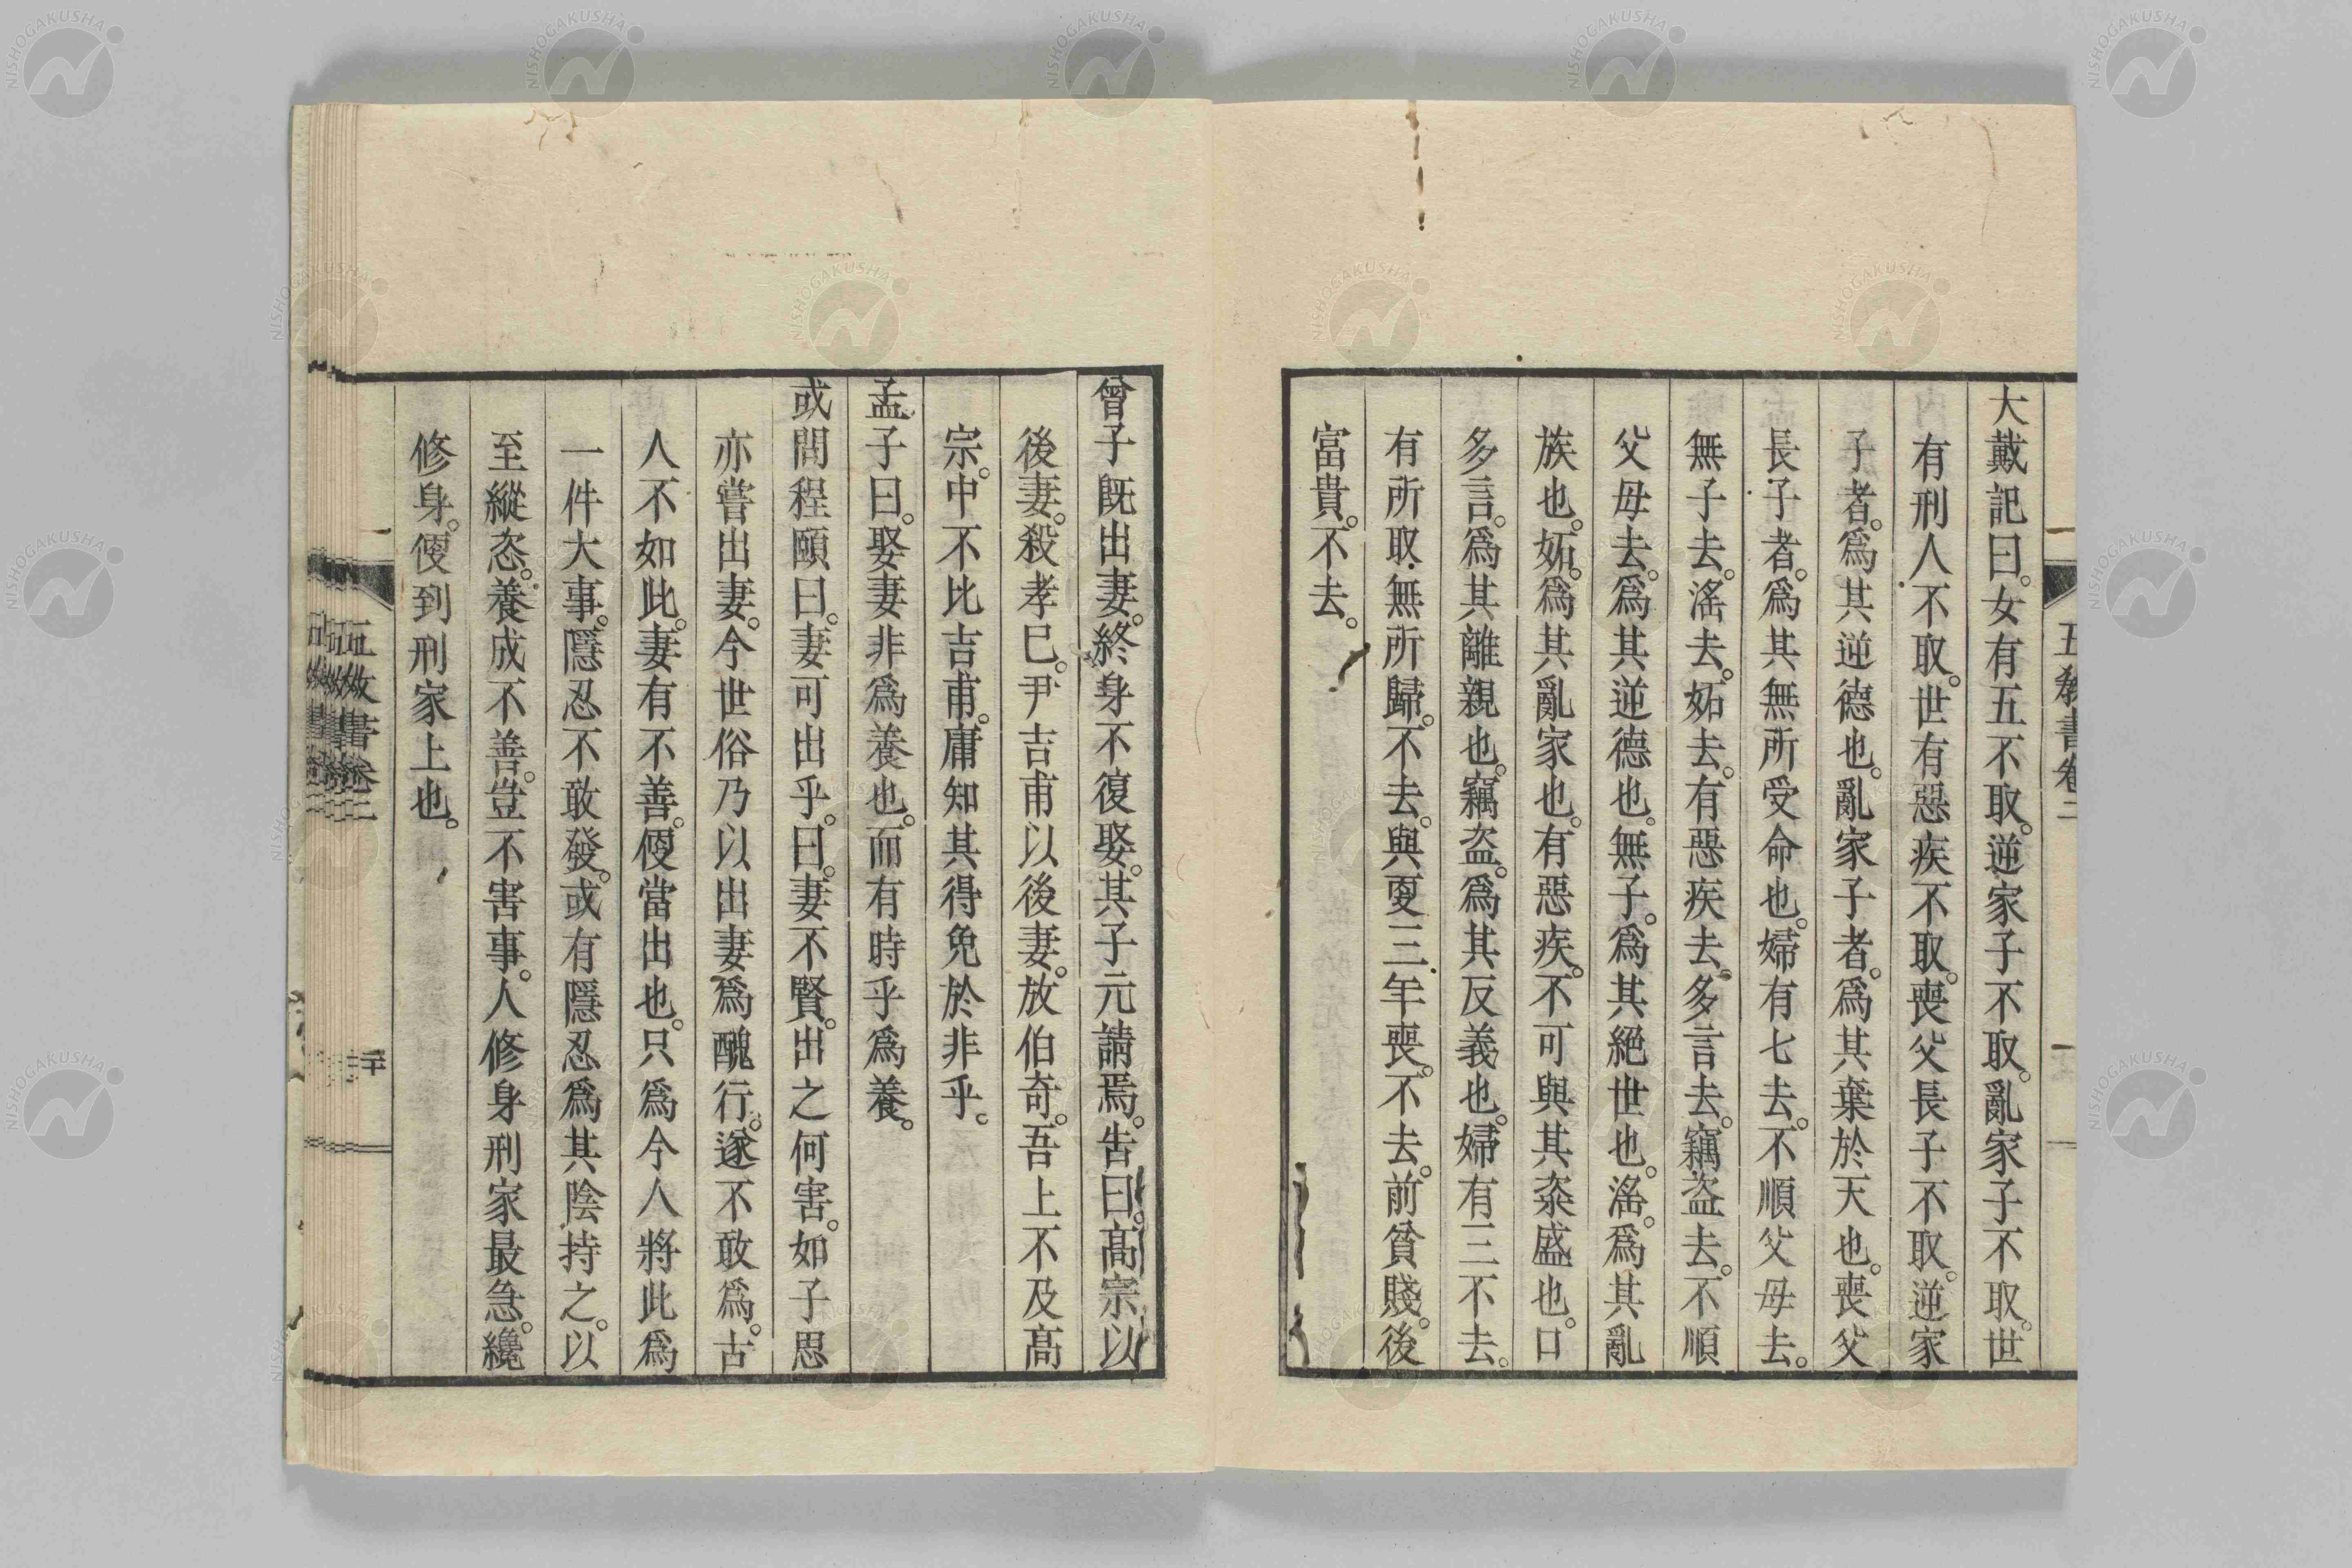 五教書卷二
大戴記曰。女有五不取。逆家子不取。亂家子不取。世
有刑人不取。世有惡疾不取。喪父長子不取。逆家
子者。爲其逆德也。亂家子者。爲其棄於天也。喪父
長子者。爲其無所受命也。婦有七去。不順父母去。
無子去。滛去。妬去。有惡疾去。多言去。竊盗去。不順
父母去。爲其逆德也。無子。爲其絕世也。滛。爲其亂
族也。妬。爲其亂家也。有惡疾。不可與其粢盛也。口
多言。爲其離親也。竊盗。爲其反義也。婦有三不去。
有所取無所歸。不去。與更三年喪。不去。前貧賤。後
富貴。不去。
曾子既出妻。終身不復娶。其子元請焉。告曰。髙宗以
後妻。殺孝已。尹吉甫以後妻。放伯奇。吾上不及髙
宗。中不比吉甫。庸知其得免於非乎。
孟子曰。娶妻非爲養也。而有時乎爲養。
或問程頤曰。妻可出乎。曰。妻不賢。出之何害。如子思
亦嘗出妻。今世俗乃以出妻爲醜行。遂不敢爲。古
人不如此。妻有不善。便當出也。只爲今人將此爲
一件大事。隱忍不敢發。或有隱忍爲其陰持之。以
至縱恣。養成不善。豈不害事。人修身刑家最急。纔
修身。便到刑家上也。
五教書卷二
二十
NISHOGAKUSHA